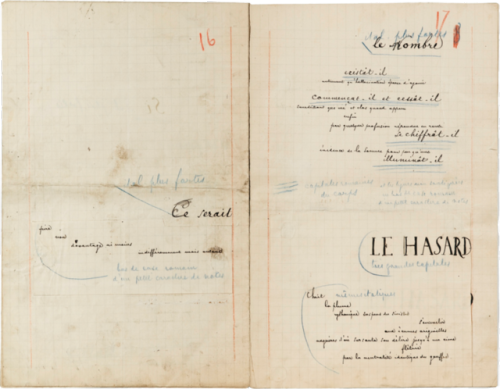 16
ital plus fortes
Ce serait
pire
non
davantage ni moins
indifféremment mais autant
bas de casse romain
17
ital plus fortes
le Nombre
existât-il
autrement qu'hallucination éparse d'agonie
commençât-il et cessât-il
sourdant que nié et clos quand apparu
enfin
par quelque profusion répandue en rareté
Se chiffrât-il
évidence de la somme pour peu qu'une
illuminât-il
LE HASARD
très grandes capitales
Choit
mêmes italiques
la plume
rythmique suspens du sinistre
s'ensevelir
aux écumes originelles
naguères d'où sursauta son délire jusqu'à une cime
flétrie
par la neutralité identique du gouffre